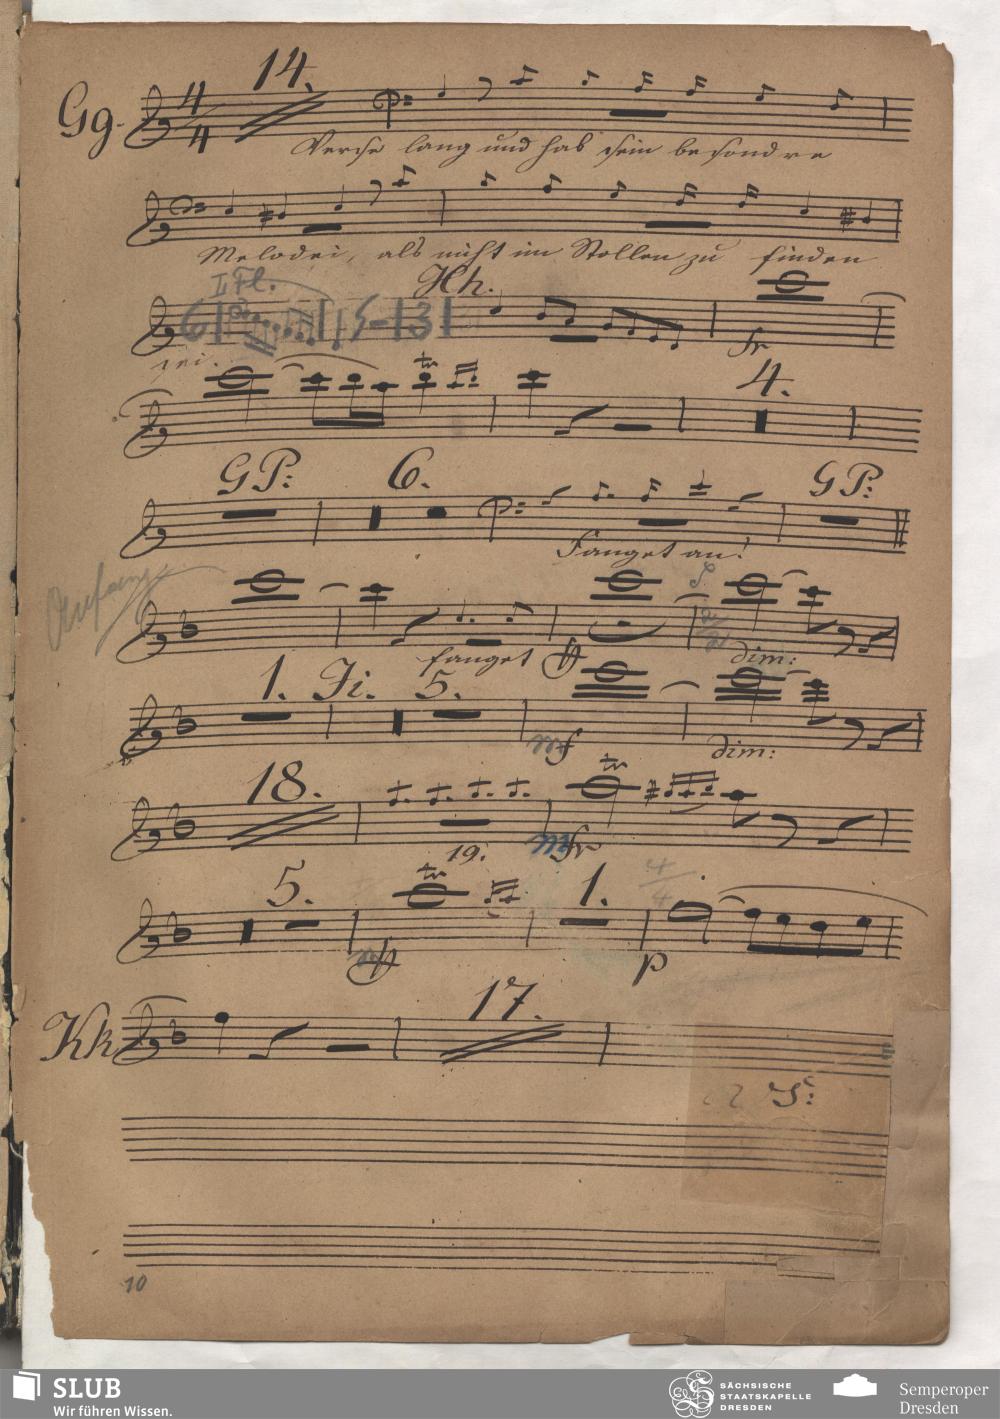 Gg. 4/4 14.
Verse lang und hab sein besondre
Melodei, als nicht im Stollen zu finden
I Fl. Hh.
6 5 - 3
sei. fr
tr
4.
GP: 6. GP:
Fanget an!
Anfang
fanget dim:
1. Ji. 5.
mf dim:
18. tr
19. mfr
5. tr 1. 4/4
p
Kk 17.
V. S:
10
SLUB
Wir führen Wissen.
SÄCHSISCHE
STAATSKAPELLE
DRESDEN
Semperoper
Dresden